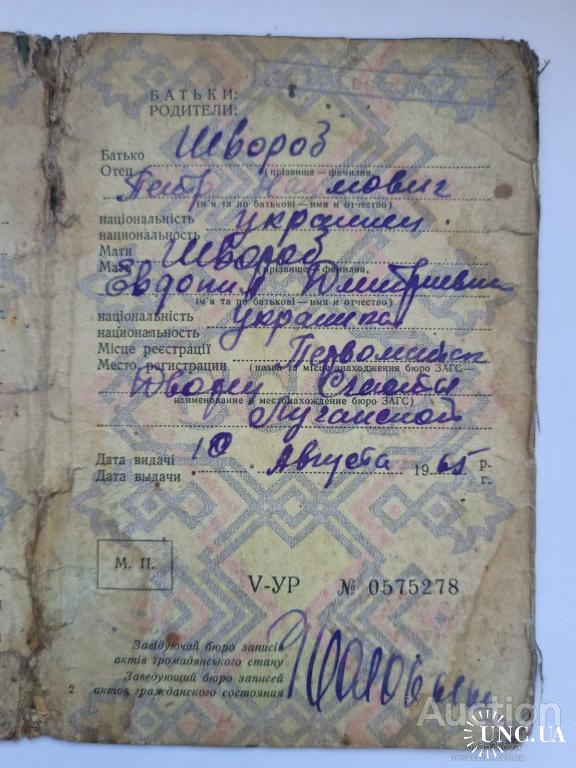 БАТЬКИ:
РОДИТЕЛИ:
Батько Швороб
Отец (прізвище — фамилия)
Петр Наумович
(ім'я та по батькові — имя и отчество)
національність украинец
национальность
Мати Швороб
Мать (прізвище — фамилия)
Евдокия Дмитриевна
(ім'я та по батькові — имя и отчество)
національність украинка
национальность
Місце реєстрації Первомайск
Место регистрации (назва та місце знаходження бюро ЗАГС —
Дворец Счастья
наименование и местонахождение бюро ЗАГС)
Луганской
Дата видачі 10 Августа 1965 р.
Дата выдачи г.
М. П.
V-УР № 0575278
Завідуючий бюро записів
актів громадянського стану
Заведующий бюро записей
актов гражданского состояния
2
Auction
UNC.UA